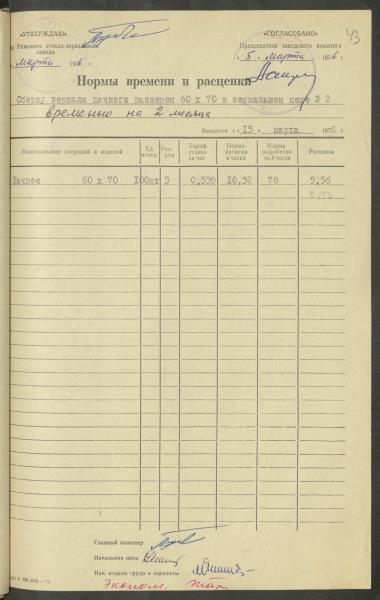 «УТВЕРЖДАЮ» «СОГЛАСОВАНО» 43
Рижского стекло-зеркального Председатель заводского комитета
завода
марта 1976 г. 5. марта 1976 г
Нормы времени и расценки
Сборку зеркала дачного размером 60 х 70 в зеркальном цехе № 2
временно на 2 месяца
Вводится с «15» марта 1976 г
Наименование операций и изделий Ед. измер. Разряд Тариф. ставка за час Норма времени в часах Норма выработки за 8 часов Расценок
Дачное 60 х 70 100шт 3 0,539 10,32 78 5,56
Главный инженер
Начальник цеха
Нач. отдела труда и зарплаты
Эконом.